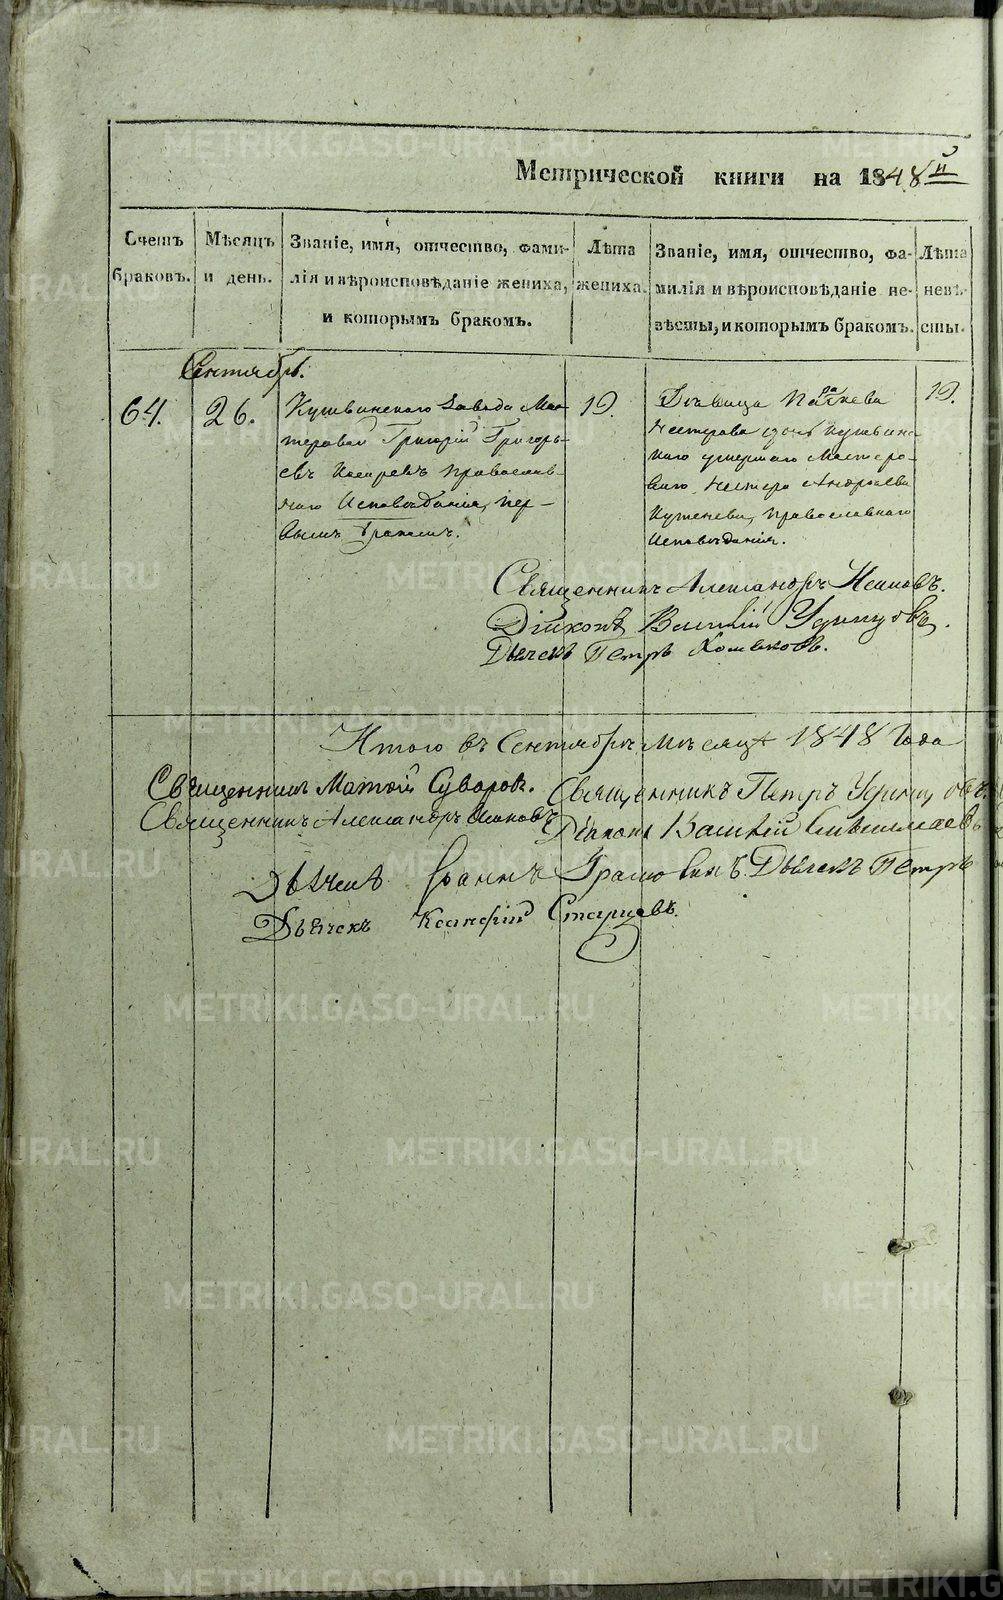 Метрической книги на 1848й
Счетъ браковъ.
Мѣсяцъ и день.
Званіе, имя, отчество, фами-
лія и вѣроисповѣданіе жениха,
и которымъ бракомъ.
Лѣта
жениха.
Званіе, имя, отчество, фа-
милія и вѣроисповѣданіе не-
вѣсты, и которымъ бракомъ.
Лѣта
невѣ-
сты.
Сентябрь.
64.
26.
Кушвинскаго завода Мас
теровой Григорій Григорь-
евъ православ-
наго Исповѣданія, пер-
вымъ бракомъ.
19.
Дѣвица
Нестерова дочь Кушвинс
каго умершаго Мастеро-
ваго Нестера Андреева
православнаго
Исповѣданія.
19.
Священникъ Александръ
Діаконъ Василій Удинцовъ.
Дьячекъ Петръ Хомяковъ.
Итого въ Сентябрѣ мѣсяцѣ 1848 Года
Священникъ Матфій Суворовъ. Священникъ Петръ Удинцовъ.
Священникъ Александръ Діаконъ Василій
Дьячекъ Іоаннъ Дьячекъ Петръ
Дьячекъ Ксанфій Старцевъ.
METRIKI.GASO-URAL.RU